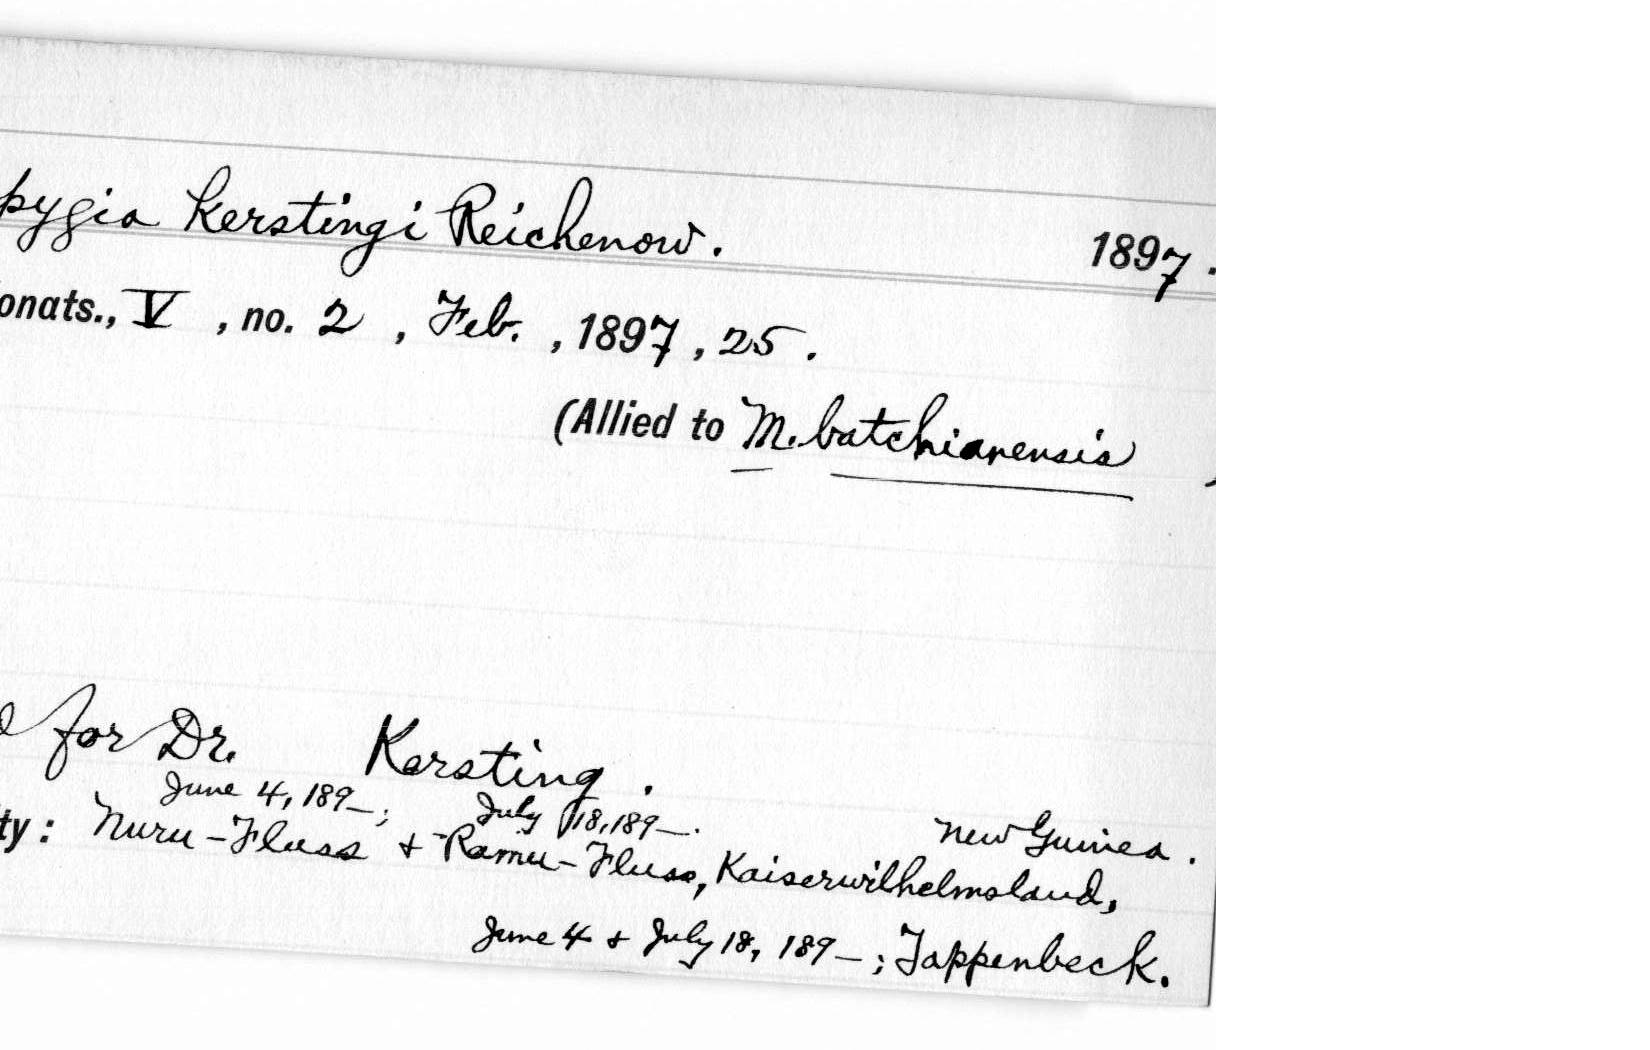 pygia kerstingi Reichenow. 1897.
onats., V, no. 2, Feb., 1897, 25.
(Allied to M. batchianensis )
for Dr. Kersting.
June 4, 189–; July 18, 189–. New Guinea.
ty: Nuru-Fluss & Ramu-Fluss, Kaiserwilhelmsland,
June 4 & July 18, 189–; Tappenbeck.